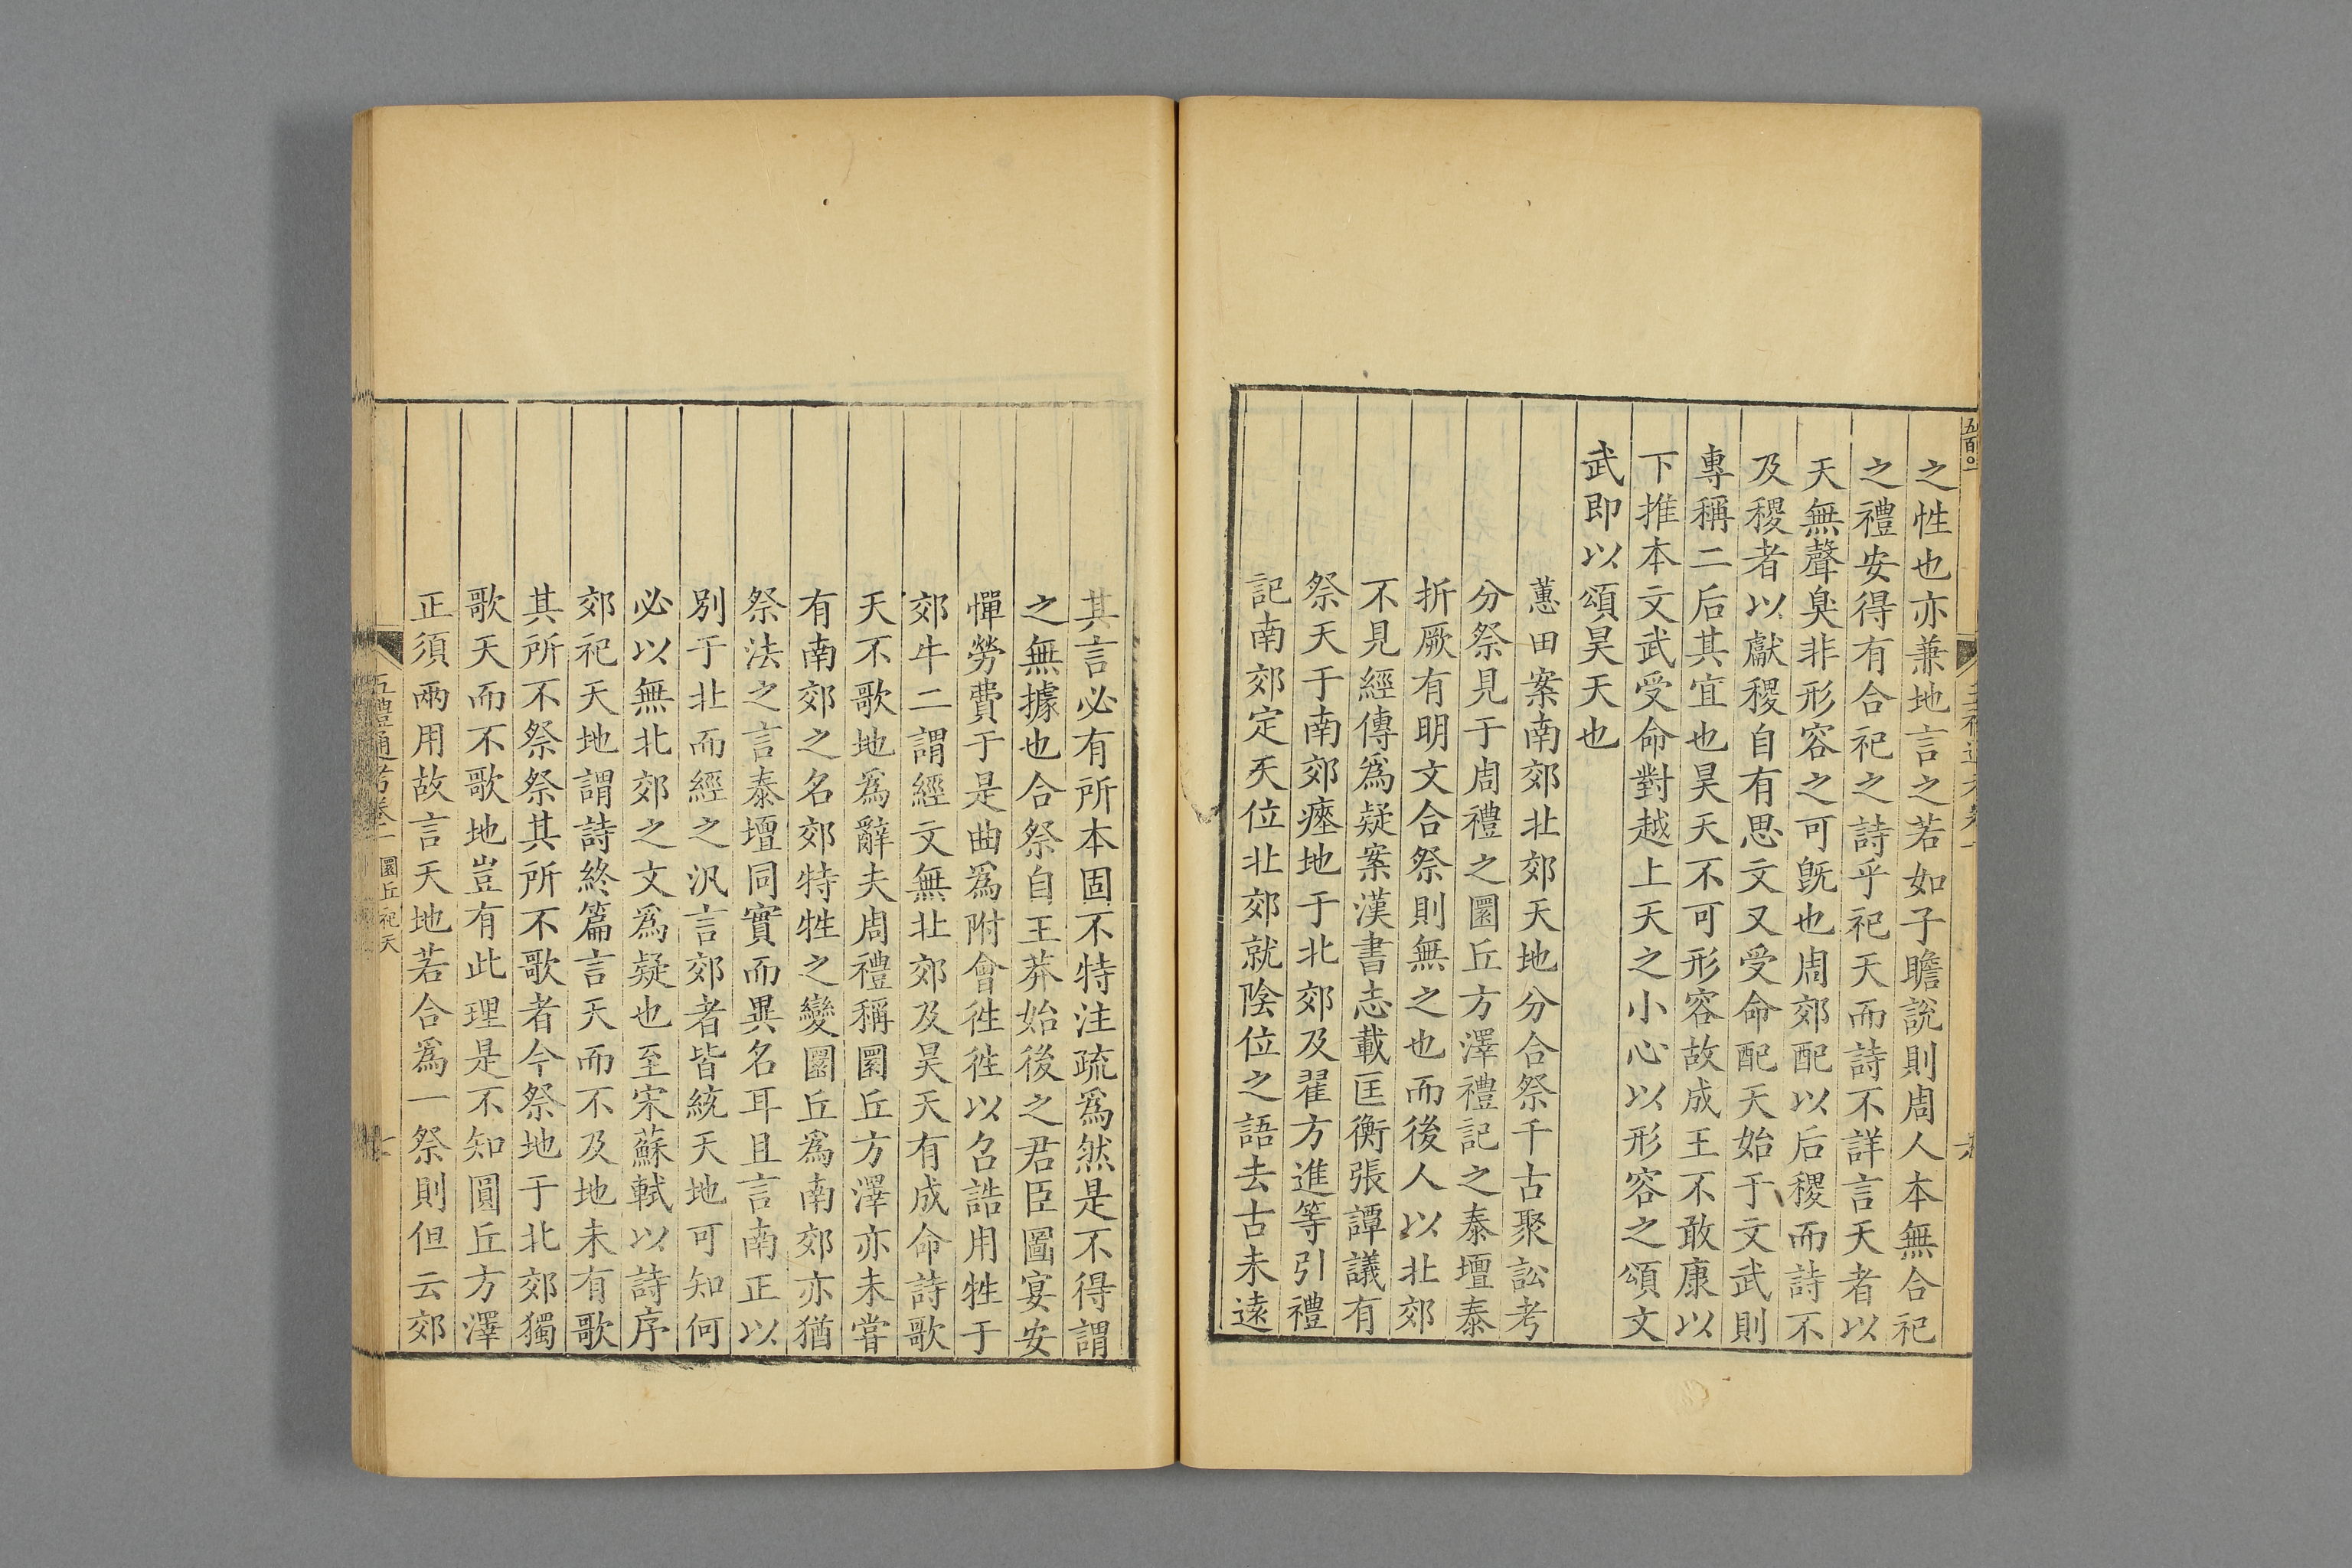 五百〇一
之性也亦兼地言之若如子瞻說則周人本無合祀
之禮安得有合祀之詩乎祀天而詩不詳言天者以
天無聲臭非形容之可旣也周郊配以后稷而詩不
及稷者以獻稷自有思文又受命配天始于文武則
專稱二后其宜也昊天不可形容故成王不敢康以
下推本文武受命對越上天之小心以形容之頌文
武即以頌昊天也
蕙田案南郊北郊天地分合祭千古聚訟考
分祭見于周禮之圜丘方澤禮記之泰壇泰
折厥有明文合祭則無之也而後人以北郊
不見經傳爲疑案漢書志載匡衡張譚議有
祭天于南郊瘞地于北郊及翟方進等引禮
記南郊定天位北郊就陰位之語去古未遠
其言必有所本固不特注疏爲然是不得謂
之無據也合祭自王莽始後之君臣圖宴安
憚勞費于是曲爲附會徃徃以召誥用牲于
郊牛二謂經文無北郊及昊天有成命詩歌
天不歌地爲辭夫周禮稱圜丘方澤亦未嘗
有南郊之名郊特牲之變圜丘爲南郊亦猶
祭法之言泰壇同實而異名耳且言南正以
別于北而經之汎言郊者皆統天地可知何
必以無北郊之文爲疑也至宋蘇軾以詩序
郊祀天地謂詩終篇言天而不及地未有歌
其所不祭祭其所不歌者今祭地于北郊獨
歌天而不歌地豈有此理是不知圓丘方澤
正須兩用故言天地若合爲一祭則但云郊
五禮通考卷一 圜丘祀天